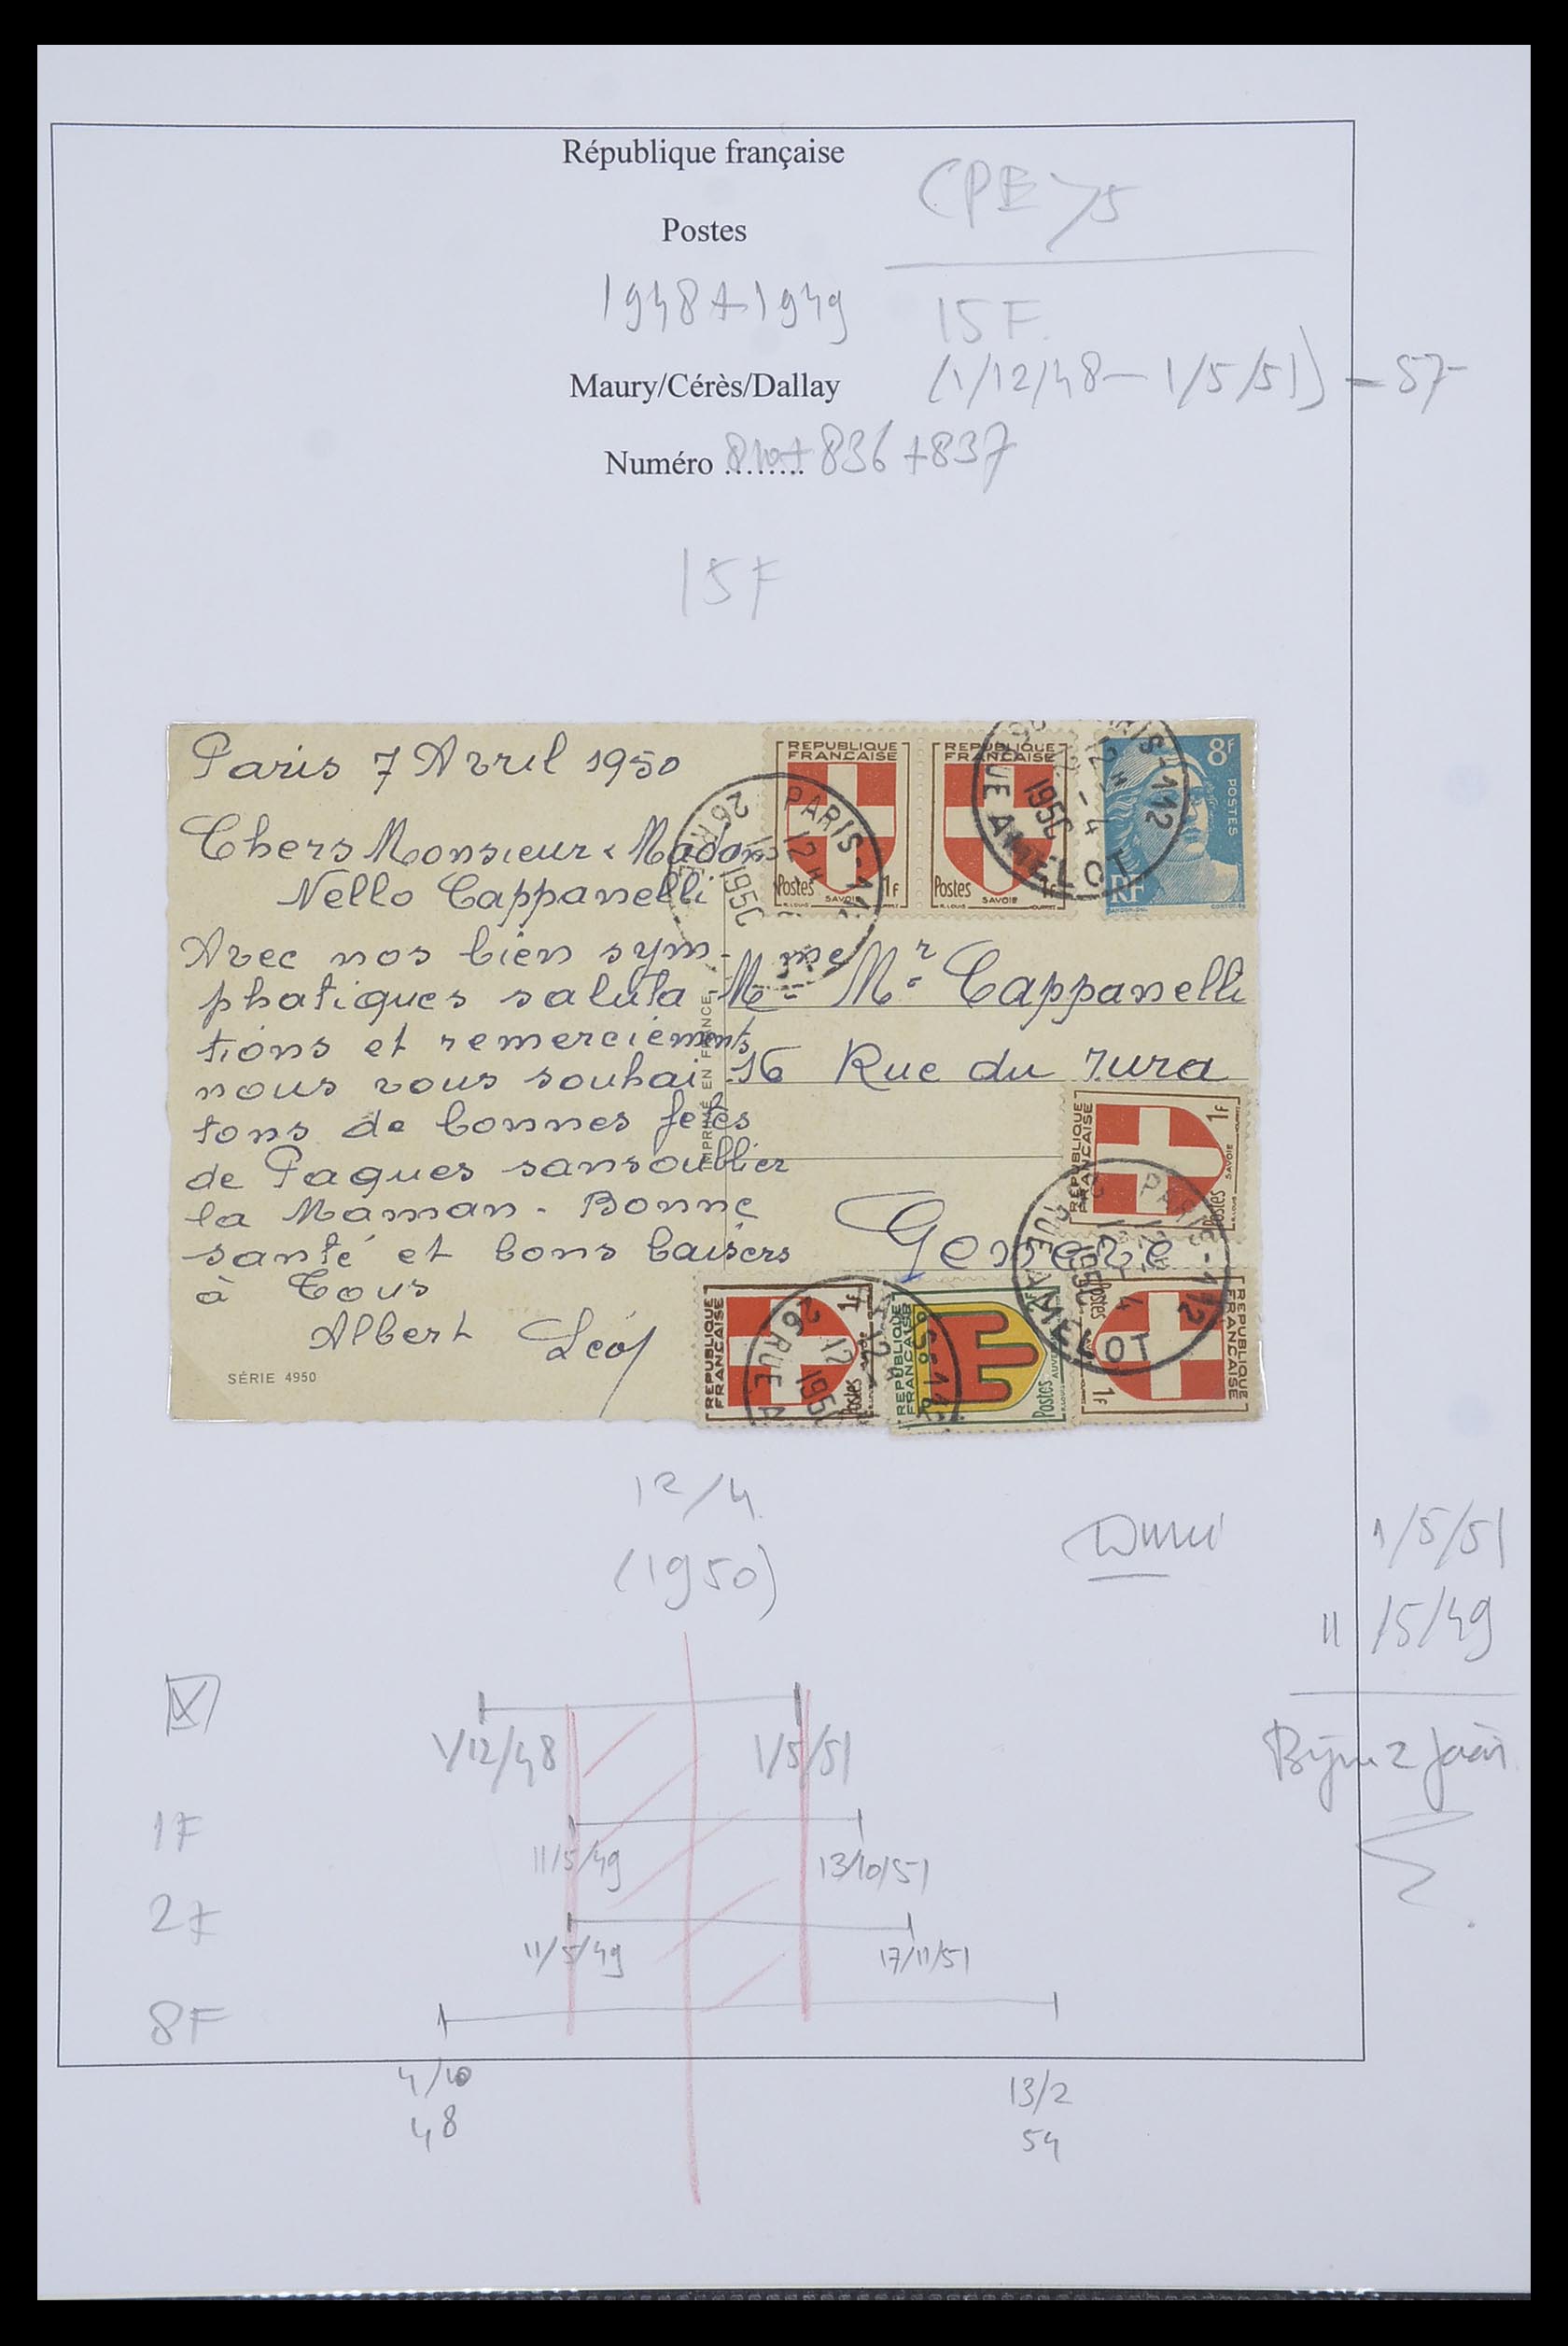 République française
CPE 75
Postes
1948+1949
15F.
Maury/Cérès/Dallay
(1/12/48 — 1/5/51) — 57-
Numéro ........ 810+ 836 +837
15F
Paris 7 Avril 1950
Chers Monsieur & Madam
Nello Cappanelli
Avec nos bien sym-
phatiques saluta-
tions et remerciements
nous vous souhai-
tons de bonnes fetes
de Paques sansoublier
la Maman - Bonne
santé et bons baisers
à tous
Albert Léo
SÉRIE 4950
IMPRIMÉ EN FRANCE
REPUBLIQUE FRANÇAISE
Postes 1F
SAVOIE
REPUBLIQUE FRANÇAISE
Postes 1F
SAVOIE
8F
POSTES
RF
PARIS-11
12H
12
1950
26 R
RIS-112
12H
-4
1950
RUE AMELOT
Mme Mr Cappanelli
16 Rue du Jura
Geneve
REPUBLIQUE FRANÇAISE
Postes 1F
SAVOIE
PARIS-112
-4
1950
RUE AMELOT
REPUBLIQUE FRANÇAISE
Postes 1F
12
195
26 RUE A
REPUBLIQUE FRANÇAISE
Postes 2F
AUVERGNE
REPUBLIQUE FRANÇAISE
Postes 1F
12/4
(1950)
1/5/51
11/5/49
2 jaar
1/12/48
1/5/51
1F
11/5/49
13/10/51
2F
11/5/49
17/11/51
8F
4/10
48
13/2
54